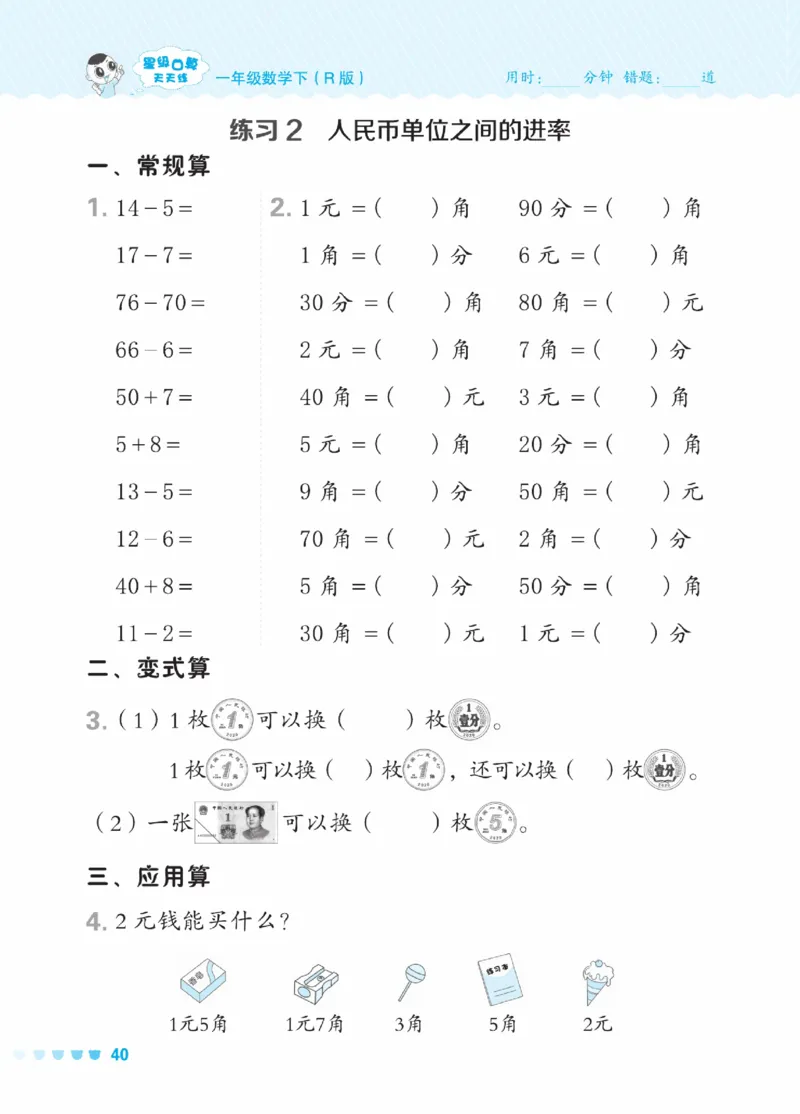 星级口算
天天练
一年级数学下(R版)
用时:____分钟 错题:____道
练习2 人民币单位之间的进率
一、常规算
1. 14-5= 2. 1元=( )角 90分=( )角
17-7= 1角=( )分 6元=( )角
76-70= 30分=( )角 80角=( )元
66-6= 2元=( )角 7角=( )分
50+7= 40角=( )元 3元=( )角
5+8= 5元=( )角 20分=( )角
13-5= 9角=( )分 50角=( )元
12-6= 70角=( )元 2角=( )分
40+8= 5角=( )分 50分=( )角
11-2= 30角=( )元 1元=( )分
二、变式算
3.(1)1枚 1 可以换( )枚 1 壹分 。
1枚 1 可以换( )枚 1 ,还可以换( )枚 1 壹分 。
(2)一张 1 可以换( )枚 5 。
三、应用算
4. 2元钱能买什么?
练习本
1元5角 1元7角 3角 5角 2元
40